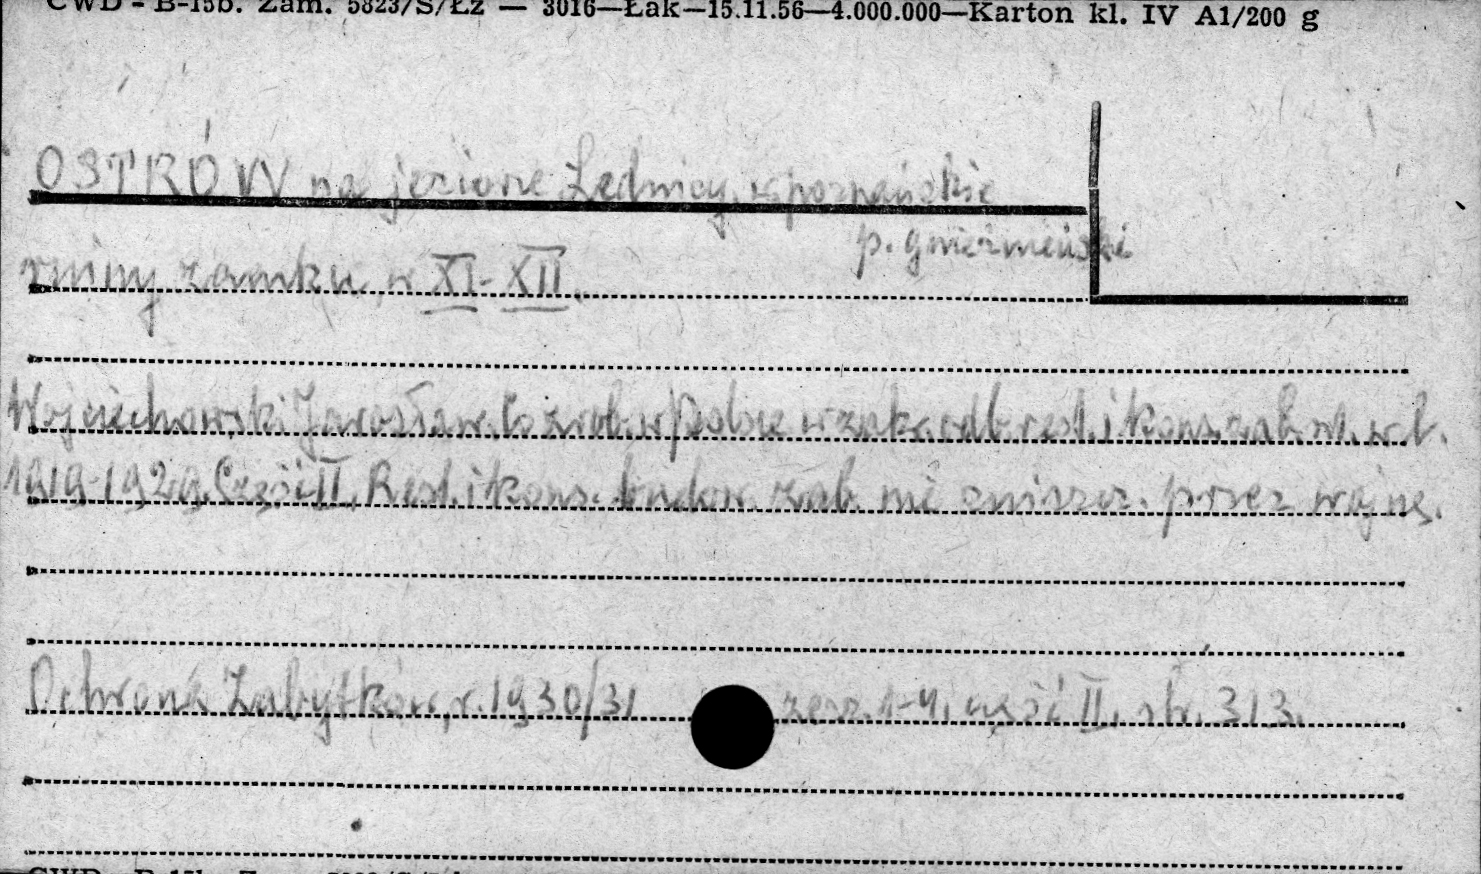 CWD - B-15b. Zam. 5823/S/Łż — 3016—Łak—15.11.56—4.000.000—Karton kl. IV A1/200 g
OSTRÓW na jeziorze Lednicy, w. poznańskie
p. gnieźnieński
ruiny zamku, w XI-XII.
Wojciechowski Jarosław. Co zrob. w Polsce w zakr. odb. rest. i kons. zab. w l.
1919-1929. Część II. Rest. i kons. budow. zab. nie zniszcz. przez wojnę.
Ochrona Zabytków, r. 1930/31 zesz. 1-4, część II, str. 313.